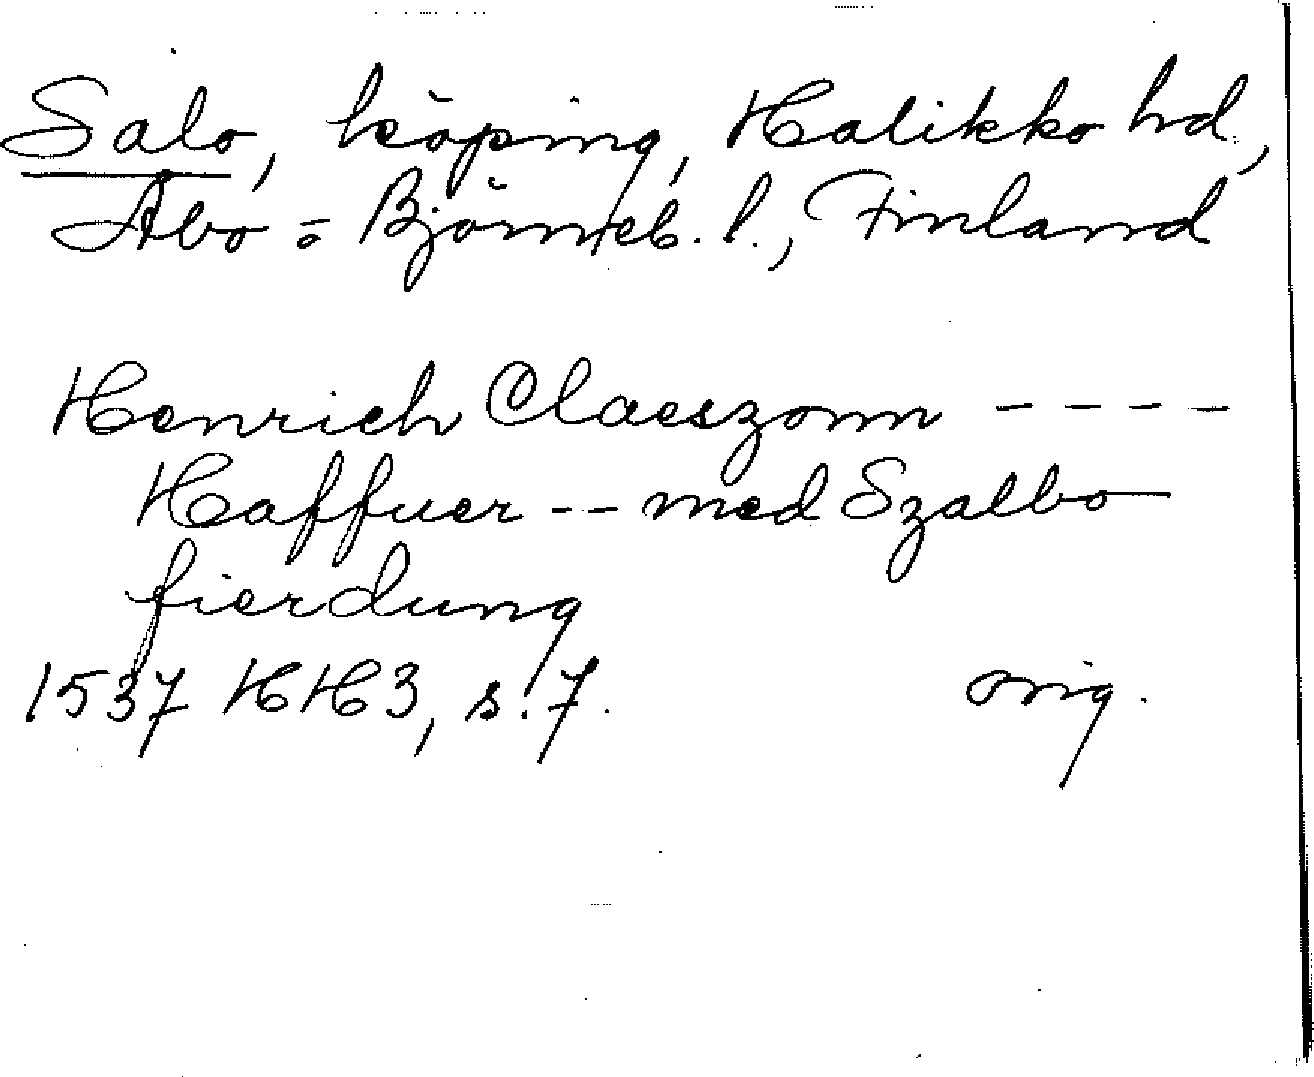 Salo, köping, Halikko hd.,
Åbo = Björneb. l., Finland
Henrich Claeszonn - - - -
Haffuer - - med Szalbo
fierdung
1537 HH3, s. 7. orig.